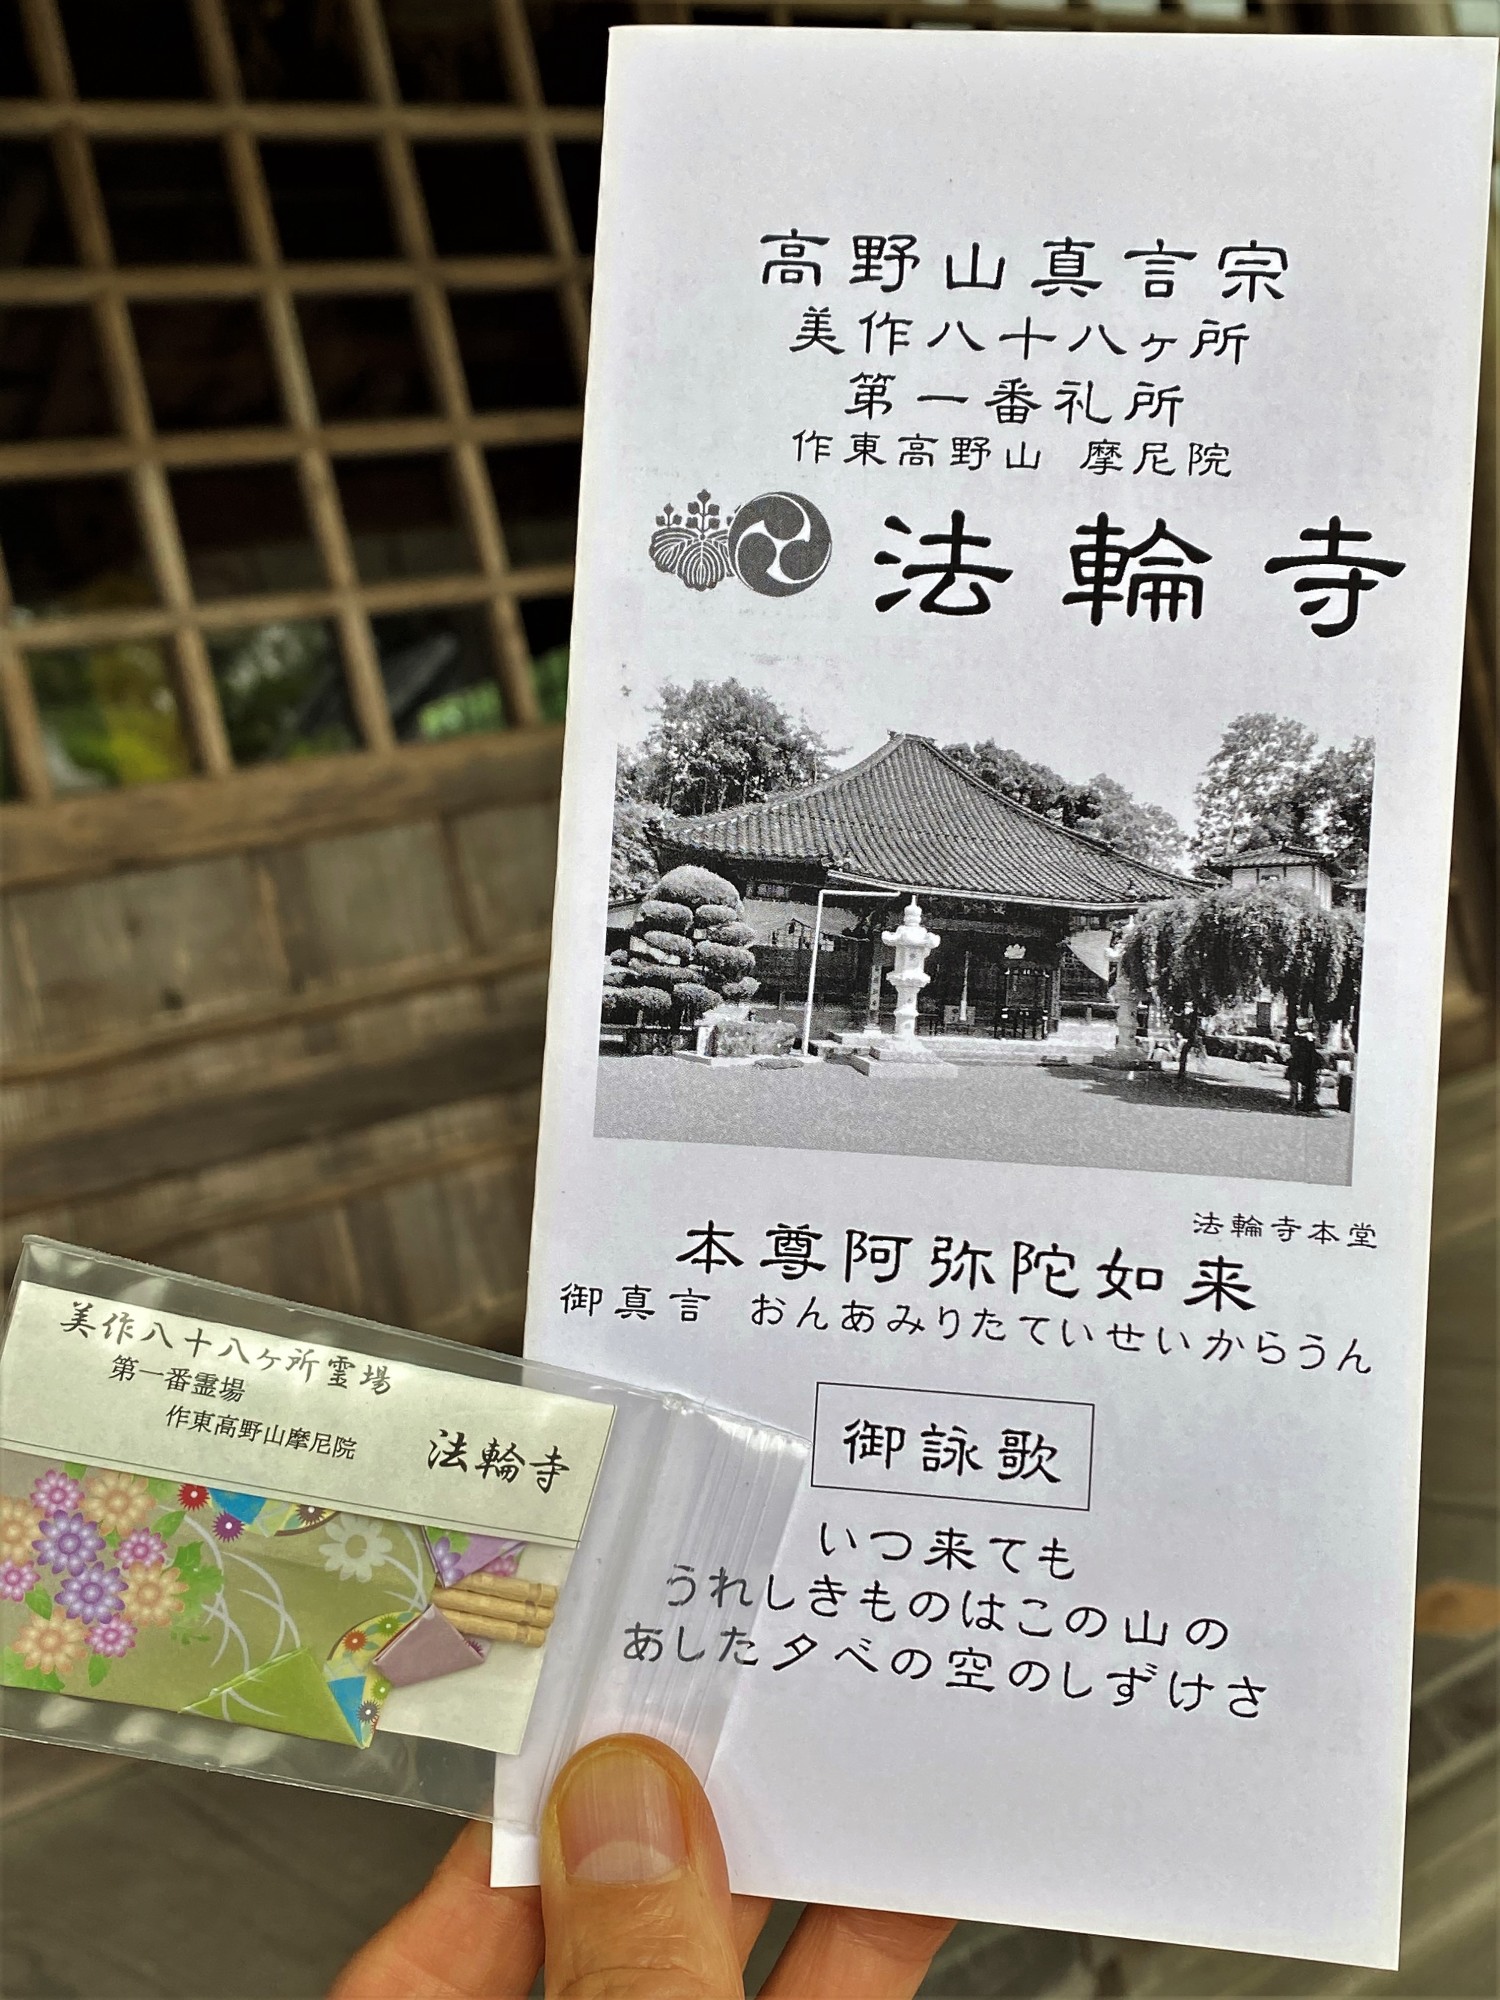 高野山真言宗
美作八十八ヶ所
第一番礼所
作東高野山 摩尼院
法輪寺
法輪寺本堂
本尊阿弥陀如来
御真言 おんあみりたていせいからうん
御詠歌
いつ来ても
うれしきものはこの山の
あした夕べの空のしずけさ
美作八十八ヶ所霊場
第一番霊場
作東高野山摩尼院
法輪寺